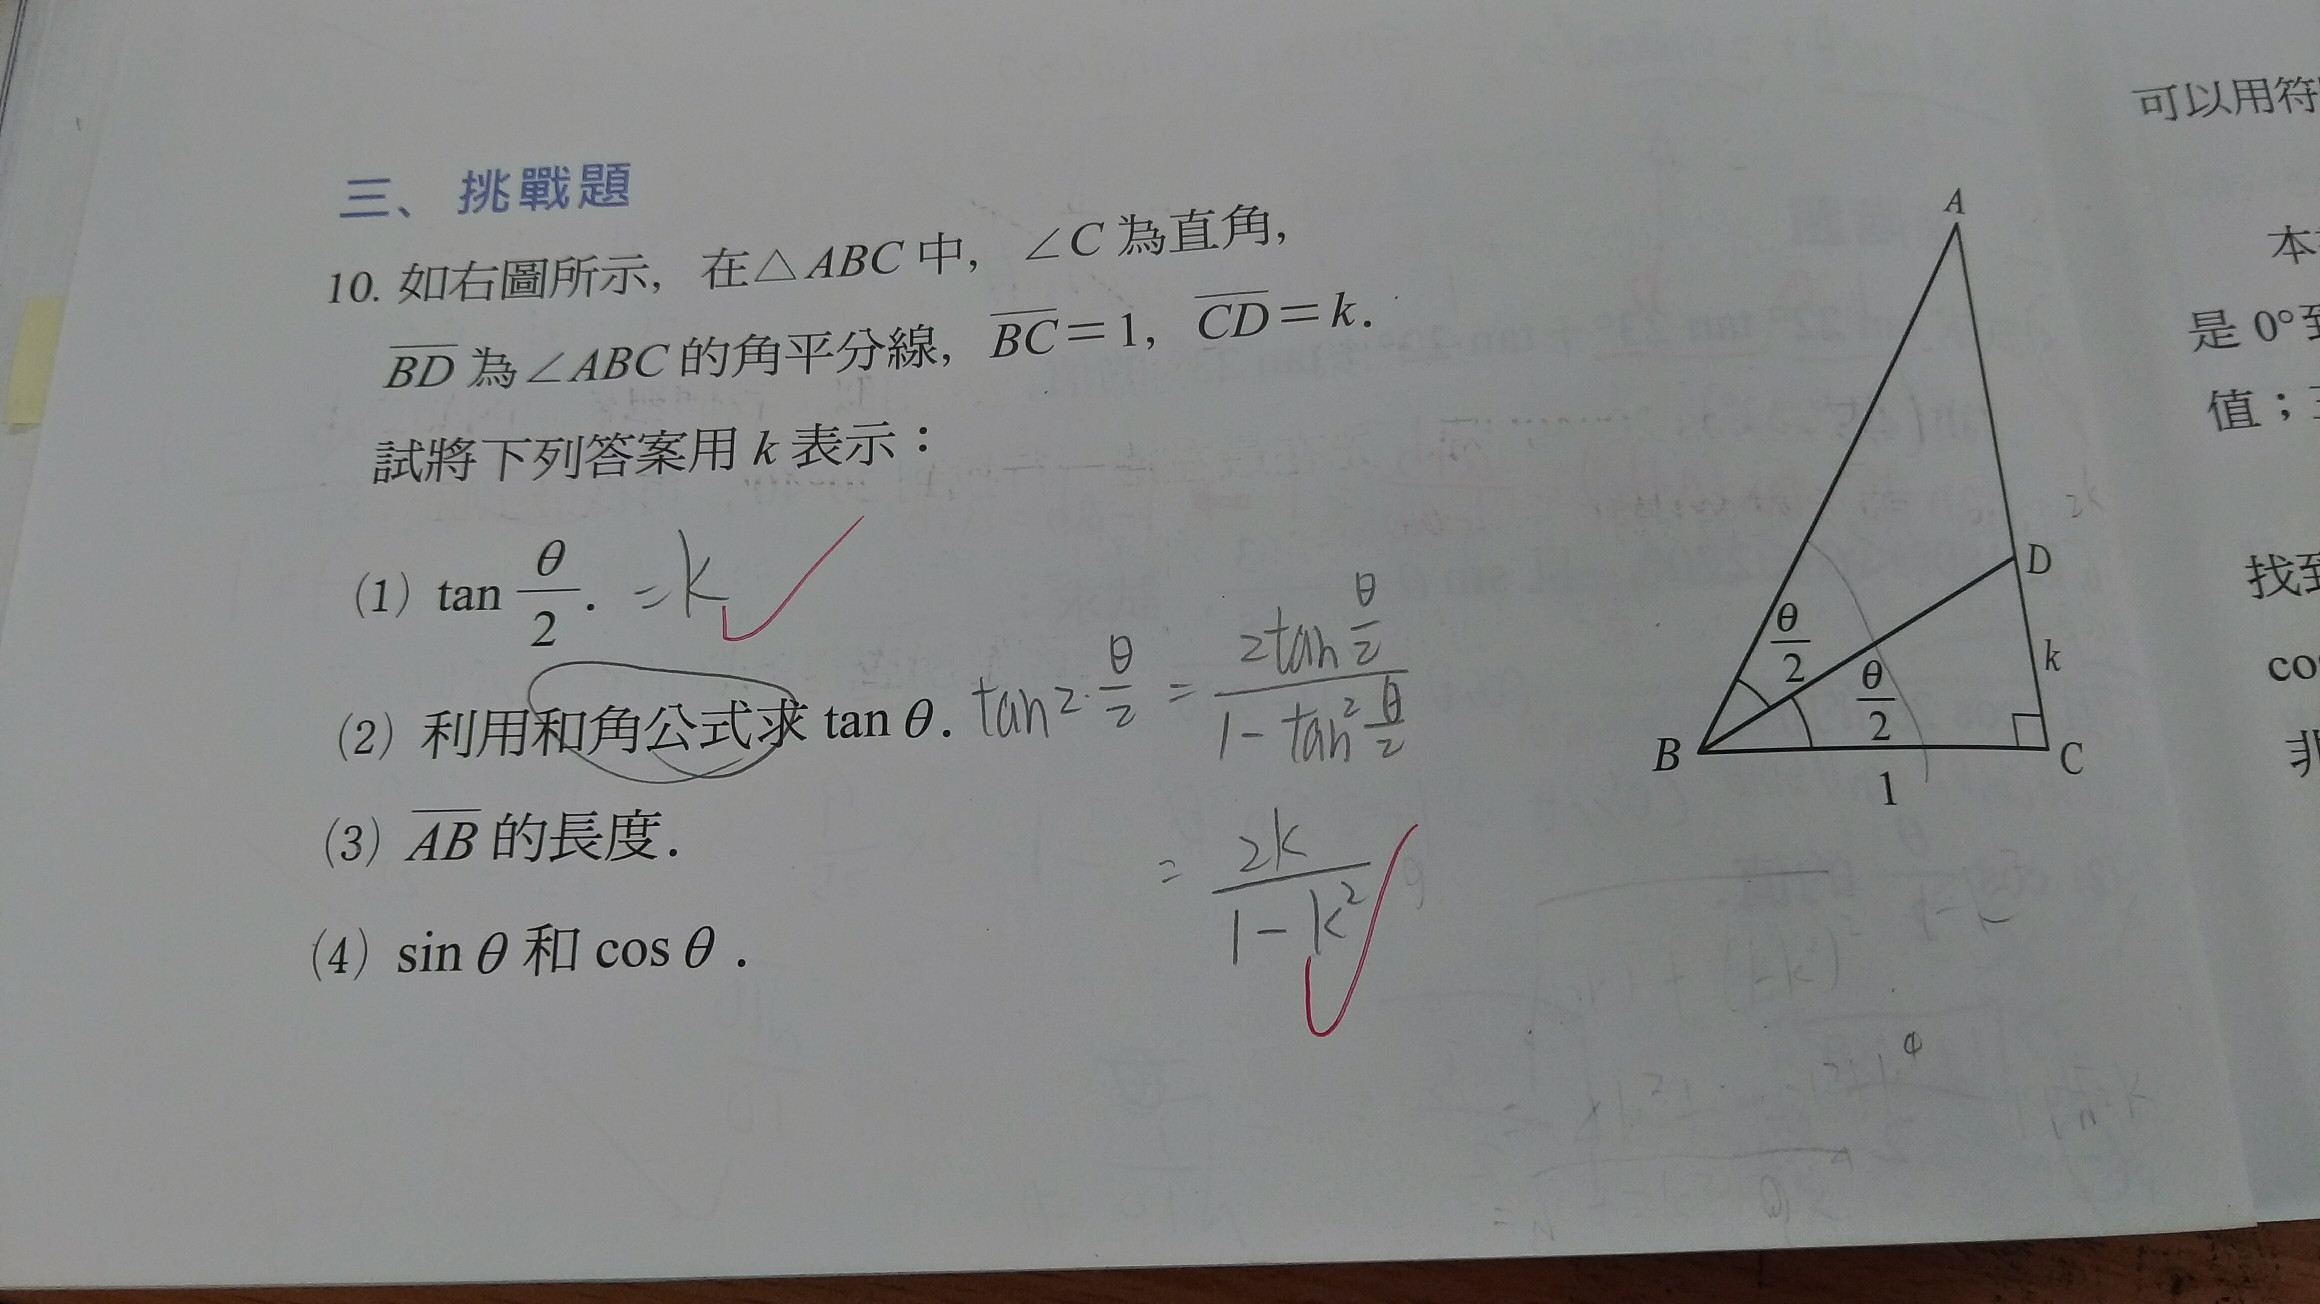 三、挑戰題
10. 如右圖所示，在△ABC中，∠C為直角，
BD為∠ABC的角平分線，BC=1，CD=k．
試將下列答案用k表示：
(1) tan θ/2．=k
(2) 利用和角公式求 tan θ． tan2·θ/2 = 2tan θ/2 / 1-tan² θ/2
= 2k / 1-k²
(3) AB的長度．
(4) sin θ 和 cos θ．
A
D
2k
k
θ/2
θ/2
B
C
1
可以用符
本
是 0°到
值；
找到
co
非